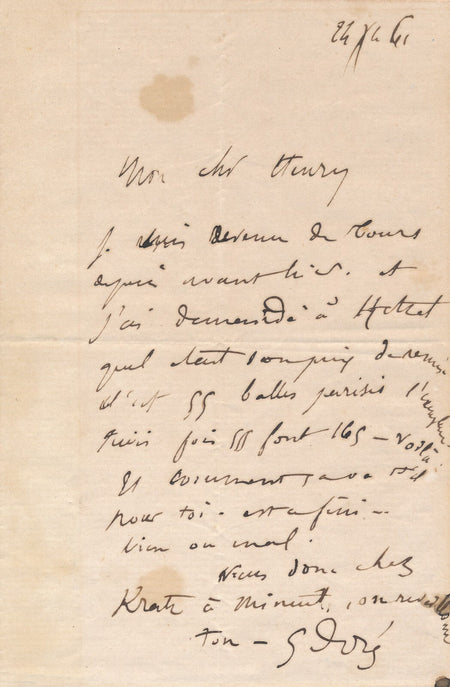 24 Xbre 61
Mon cher Henry
Je suis revenu de Tours
depuis avant hier. et
j'ai demandé à Hetzel
quel était son prix de remise
c'est 55 balles
trois fois 55 font 165 — voilà
Et comment ça va t'il
pour toi. est-ce fini —
bien ou mal.
Viens donc chez
Kratz à minuit, on
ton — G Doré